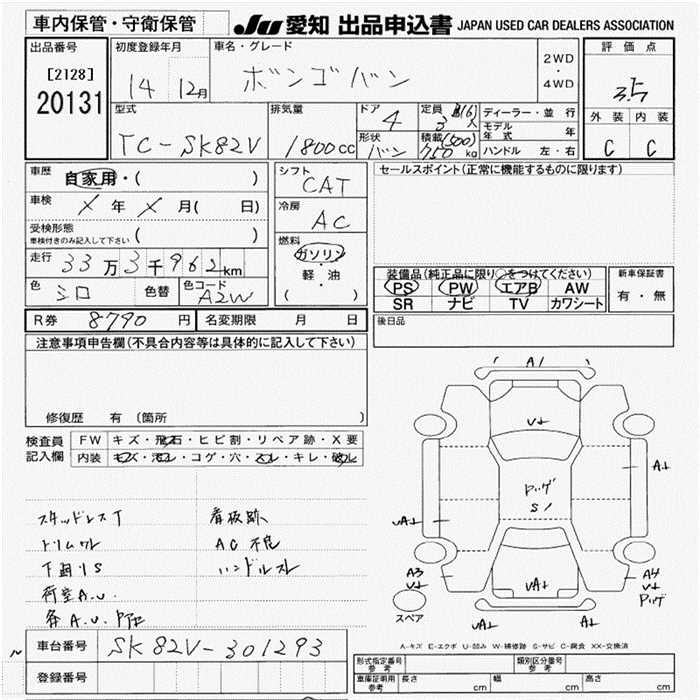 車内保管・守衛保管
JU 愛知 出品申込書 JAPAN USED CAR DEALERS ASSOCIATION
出品番号
[2128]
20131
初度登録年月
14 12月
車名・グレード
ボンゴバン
2WD
・
4WD
評価点
3.5
外装 内装
C C
型式
TC-SK82V
排気量
1800cc
ドア
4
形状
バン
定員
3(6)人
積載(500)
750kg
ディーラー・並行
モデル年式 年
ハンドル 左・右
車歴
自家用・( )
車検
X 年 X 月( 日)
受検形態
車検付きのみ記入して下さい ( )
走行
33万3千962km
色
シロ
色替
色コード
A2W
シフト
CAT
冷房
AC
燃料
ガソリン
軽・油
( )
セールスポイント(正常に機能するものに限ります)
装備品(純正品に限り○をつけてください)
PS PW エアB AW
SR ナビ TV カワシート
新車保証書
有・無
R券 8790円
名変期限 月 日
後日品
注意事項申告欄(不具合内容等は具体的に記入して下さい)
修復歴 有 (箇所 )
検査員
記入欄
FW キズ・飛石・ヒビ割・リペア跡・X要
内装 キズ・汚れ・コゲ・穴・スレ・キレ・破れ
スタッドレスT
トリムワレ
下廻りS
荷室A.U.
看板跡
AC不良
ハンドルスレ
A1
U↓
A↓
ルーフ
S1
UA↓
A3
U↓
UA↓
A4
U↓
UA↓
A↓
スペア
A-キズ E-エクボ U-凹み W-補修跡 S-サビ C-腐食 XX-交換済
〜
車台番号
SK82V-301293
登録番号
形式指定番号
参考
類別区分番号
参考
車庫証明用
参考
長さ cm
幅 cm
高さ cm